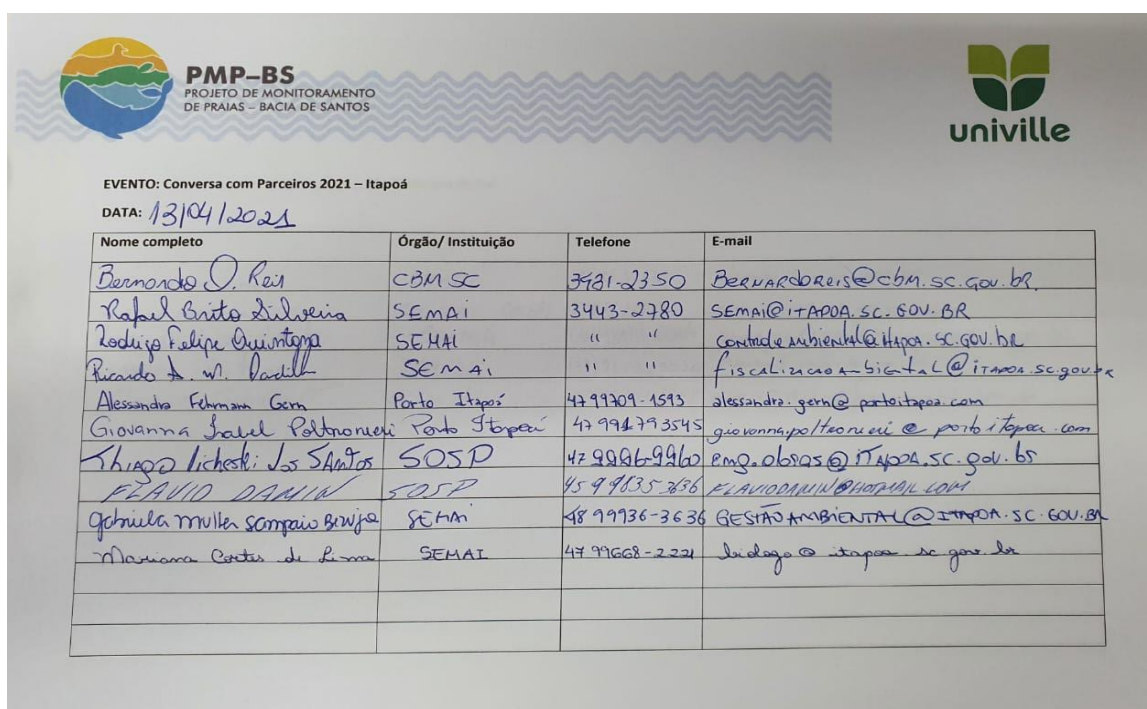 PMP–BS
PROJETO DE MONITORAMENTO
DE PRAIAS – BACIA DE SANTOS
univille
EVENTO: Conversa com Parceiros 2021 – Itapoá
DATA: 13/04/2021
Nome completo Órgão/ Instituição Telefone E-mail
Bernardo O. Reis CBMSC 3481-2350 BERNARDOREIS@CBM.SC.GOV.BR.
Rafael Brito Silveira SEMAI 3443-2780 SEMAI@ITAPOA.SC.GOV.BR
Rodrigo Felipe Quintana SEMAI " " controleambiental@itapoa.sc.gov.br
Ricardo A. W. SEMAI " " @itapoa.sc.gov.br
Alessandra Fehrmann Gern Porto Itapoá 47 99709-1593 alessandra.gern@portoitapoa.com
Giovanna Isabel Poltronieri Porto Itapoá 47 991793545 giovanna.poltronieri@portoitapoa.com
Thiago dos Santos SOSP 47 99969960 eng.obras@ITAPOA.SC.gov.br
FLAVIO DAMIN SOSP FLAVIODAMIN@HOTMAIL.COM
Gabriela Muller Sampaio SEMAI 48 99936-3636 GESTÃOAMBIENTAL@ITAPOA.SC.GOV.BR
Mariana Cortes de Lima SEMAI 47 99668-2221 biologo@itapoa.sc.gov.br